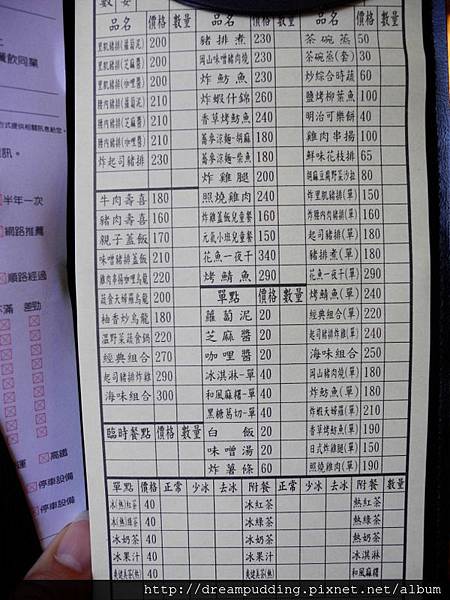 數 安
品名 價格 數量
里肌豬排(蘿蔔泥) 200
里肌豬排(芝麻醬) 200
里肌豬排(咖哩醬) 200
腰內豬排(蘿蔔泥) 210
腰內豬排(芝麻醬) 210
腰內豬排(咖哩醬) 210
炸起司豬排 230
牛肉壽喜 180
豬肉壽喜 160
親子蓋飯 170
味噌豬蓋飯 210
雞肉串揚咖哩烏龍 220
蔬食天婦羅烏龍 200
柚香炒烏龍 180
溫野菜蔬食鍋 220
經典組合 270
起司豬排炸雞 290
海味組合 300
臨時餐點 價格 數量
品名 價格 數量
豬排煮 230
岡山味噌豬肉燒 230
炸魴魚 230
炸蝦什錦 260
香草烤魴魚 240
蕎麥涼麵-胡麻 180
蕎麥涼麵-柴魚 180
炸雞腿 200
照燒雞肉 240
炸雞蓋飯兒童餐 160
元氣小班兒童餐 150
花魚一夜干 340
烤鯖魚 290
單點 價格 數量
蘿蔔泥 20
芝麻醬 20
咖哩醬 20
冰淇淋-單 40
和風麻糬-單 40
黑糖葛切-單 40
白飯 20
味噌湯 20
炸薯條 60
品名 價格 數量
茶碗蒸 50
茶碗蒸(套) 30
炒綜合時蔬 60
鹽烤柳葉魚 100
明治可樂餅 40
雞肉串揚 100
鮮味花枝排 65
胡麻豆腐野菜沙拉 80
炸里肌豬排(單) 150
炸腰內肉豬排(單) 160
起司豬排(單) 180
豬排煮(單) 180
花魚一夜干(單) 290
烤鯖魚(單) 240
經典組合(單) 220
起司豬排炸雞(單) 240
海味組合 250
岡山豬肉燒(單) 180
炸魴魚(單) 180
炸蝦天婦羅(單) 210
香草烤魴魚(單) 190
日式炸雞腿(單) 150
照燒雞肉(單) 190
單點 價格 正常 少冰 去冰 附餐 正常 少冰 去冰 附餐 數量
冰(熱)紅茶 40 冰紅茶 熱紅茶
冰(熱)綠茶 40 冰綠茶 熱綠茶
冰奶茶 40 冰奶茶 熱奶茶
冰果汁 40 冰果汁 冰淇淋
40 和風麻糬
餐飲同業
半年一次
網路推薦
順路經過
不滿 差勁
高鐵
停車設備
停車設備
http://dreampudding.pixnet.net/album